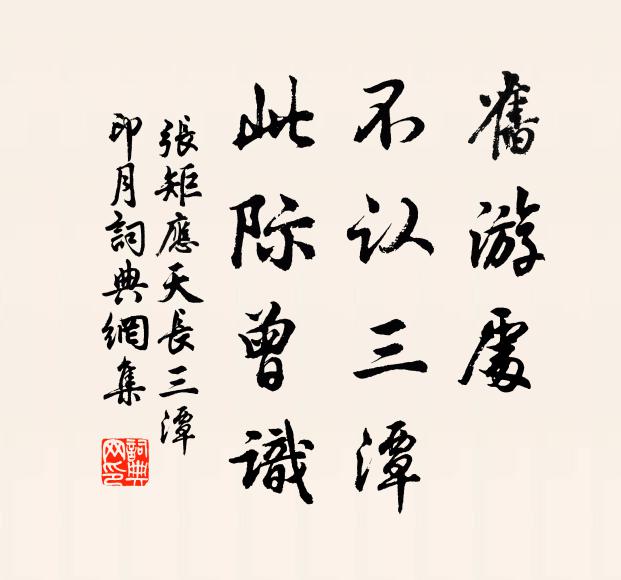 舊游處
不认三潭
此际曾識
張矩應天長三潭
印月詞典網集
詞典网印